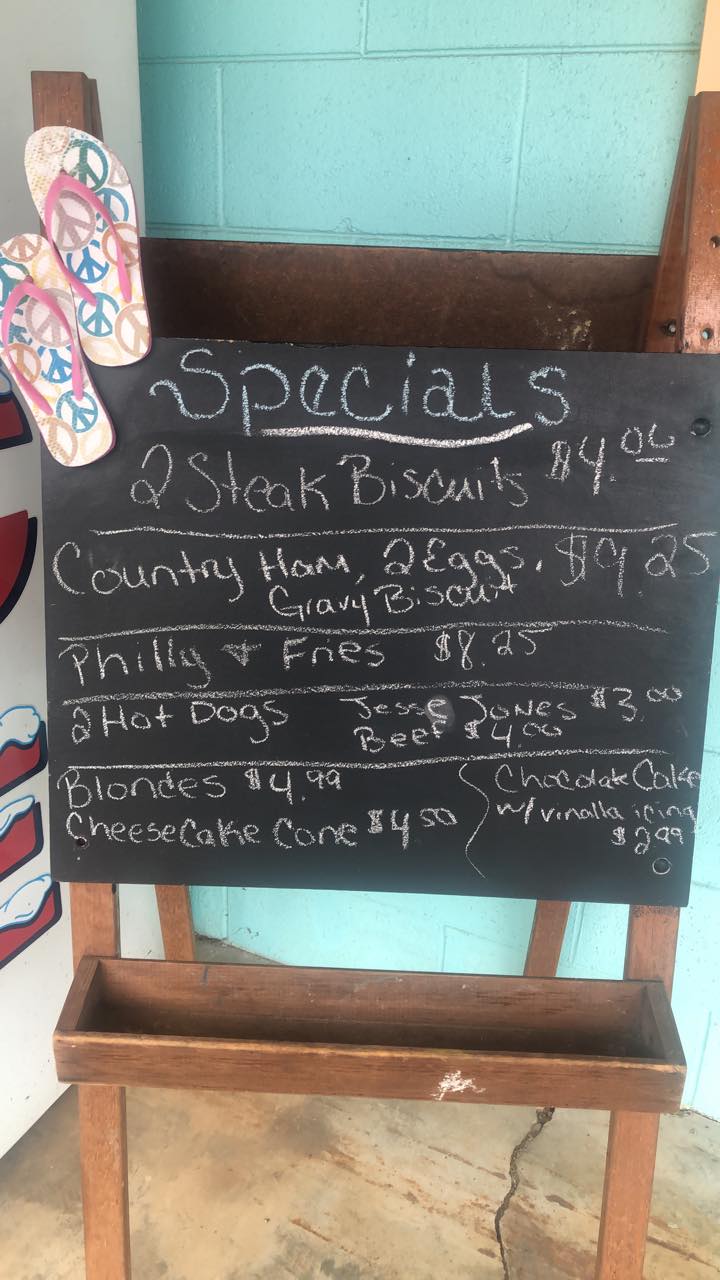 Specials
2 Steak Biscuits $4.00
Country Ham, 2 Eggs, $9.25
Gravy Biscuit
Philly + Fries $8.25
2 Hot Dogs Jesse Jones $3.00
Beef $4.00
Blondes $4.99
CheeseCake Cone $4.50
Chocolate Cake
w/ vinalla icing
$2.99